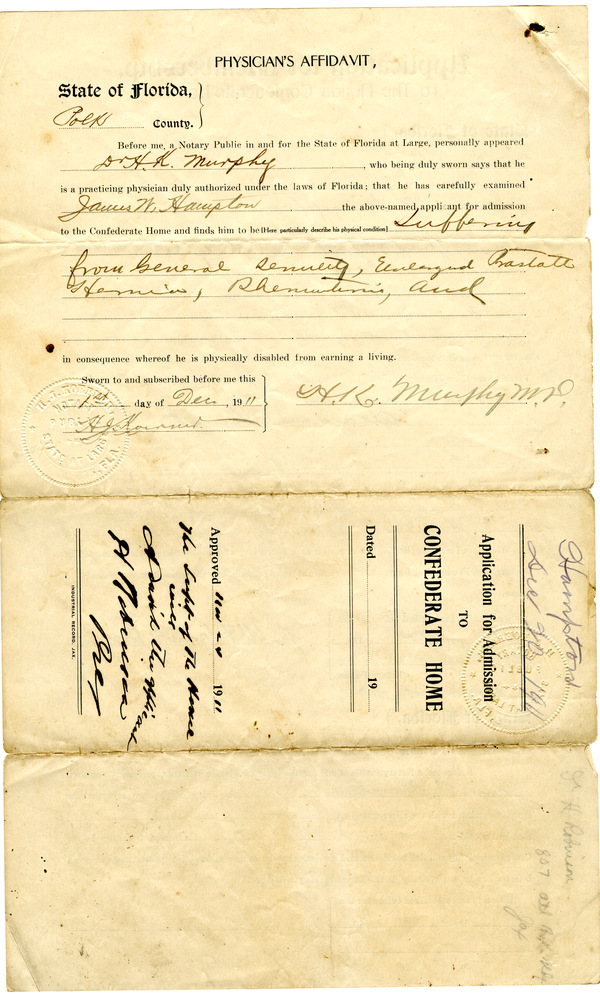 PHYSICIAN'S AFFIDAVIT,
State of Florida,
Polk County.
Before me, a Notary Public in and for the State of Florida at Large, personally appeared
Dr H. K. Murphy, who being duly sworn says that he
is a practicing physician duly authorized under the laws of Florida; that he has carefully examined
James W. Hampton the above-named applicant for admission
to the Confederate Home and finds him to be [Here particularly describe his physical condition] Suffering
from General Senility, Enlarged Prostatt
Hernia, Rhematism, and
in consequence whereof he is physically disabled from earning a living.
Sworn to and subscribed before me this
1st day of Dec, 1911
H. K. Murphy M.D.
STATE OF LARGE
FLA.
Hampton
Dec 1911
Application for Admission
TO
CONFEDERATE HOME
Dated 19
Approved 1911
The Supt of The Home
will
Advise the Applicant
H Robinson
Pres
INDUSTRIAL RECORD, JAX.
H Robinson
807
Jax